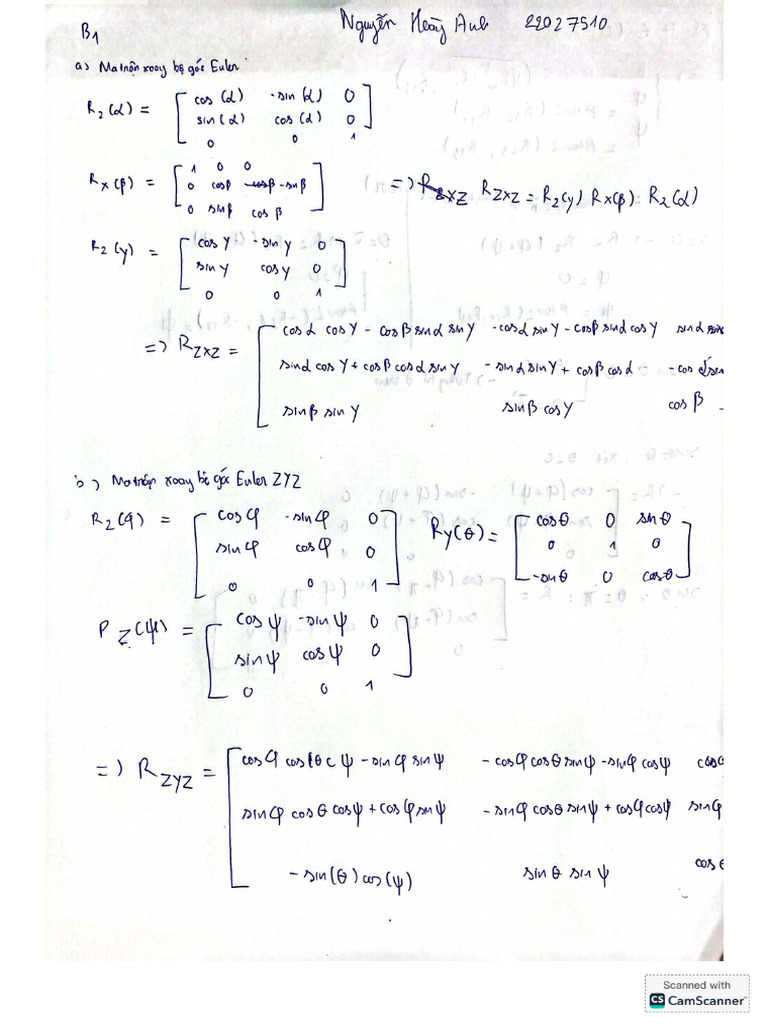 Nguyễn Hoàng Anh 22027510
B1
a) Ma trận xoay bộ góc Euler
R_z(α) = [ cos(α) -sin(α) 0
sin(α) cos(α) 0
0 0 1 ]
R_x(β) = [ 1 0 0
0 cosβ -sinβ
0 sinβ cosβ ]
=> R_ZXZ = R_z(γ) R_x(β) . R_z(α)
R_z(γ) = [ cosγ -sinγ 0
sinγ cosγ 0
0 0 1 ]
=> R_ZXZ = [ cosα cosγ - cosβ sinα sinγ -cosα sinγ - cosβ sinα cosγ sinα
sinα cosγ + cosβ cosα sinγ -sinα sinγ + cosβ cosα -cosα
sinβ sinγ sinβ cosγ cosβ
b) Ma trận xoay bộ góc Euler ZYZ
R_z(φ) = [ cosφ -sinφ 0
sinφ cosφ 0
0 0 1 ]
R_y(θ) = [ cosθ 0 sinθ
0 1 0
-sinθ 0 cosθ ]
R_z(ψ) = [ cosψ -sinψ 0
sinψ cosψ 0
0 0 1 ]
=> R_ZYZ = [ cosφ cosθ c ψ - sinφ sinψ -cosφ cosθ sinψ - sinφ cosψ
sinφ cosθ cosψ + cosφ sinψ -sinφ cosθ sinψ + cosφ cosψ sinφ
-sin(θ) cos(ψ) sinθ sinψ cosθ
Scanned with
CS CamScanner